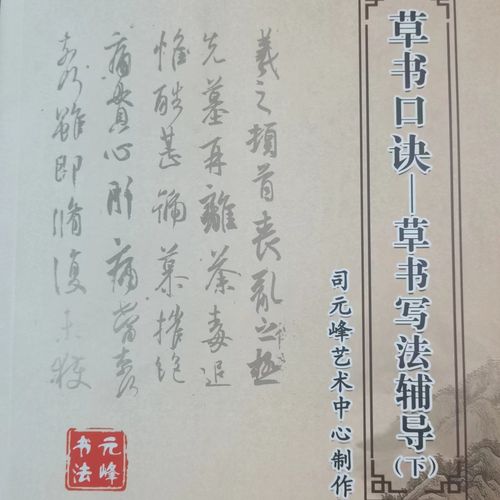 草书口诀—草书写法辅导(下)
司元峰艺术中心制作
羲之頓首喪亂之極
先墓再離荼毒追
惟酷甚號慕摧絕
痛貫心肝痛當奈何
奈何雖即脩復未獲
元峰
书法